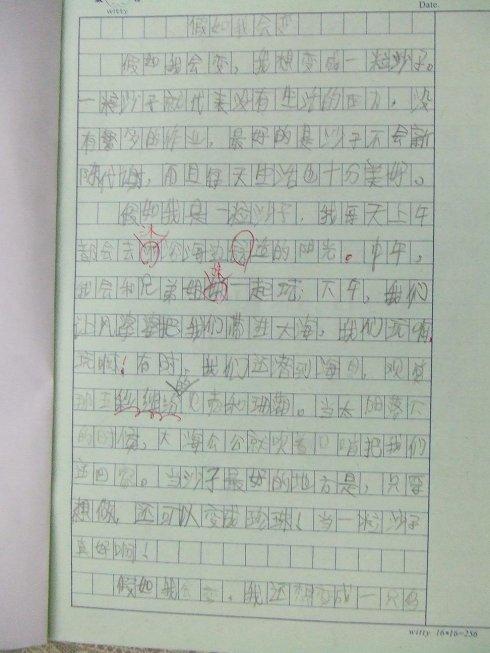 witty
Date.
假如我会变
假如我会变，我想变成一粒沙子。
一粒沙子就代表没有生活的压力，没
有繁多的作业，最好的是沙子不会新
陈代谢，而且每天生活也十分美好。
假如我是一粒沙子，我每天上午
都会去沐浴海边的阳光。中午，
我会和兄弟姐妹一起玩；下午，我们
让风婆婆把我们带进大海，我们玩啊
玩啊！有时，我们还潜到海里，观赏
五彩缤纷的和珊瑚。当太阳落下
的时候，大海公公就吹着口哨把我们
送回家。当沙子最好的地方是，只要
想做，还可以变成珍珠！当一粒沙子
真好啊！
假如我会变，我还想变成一只鸟
witty 16*16=256